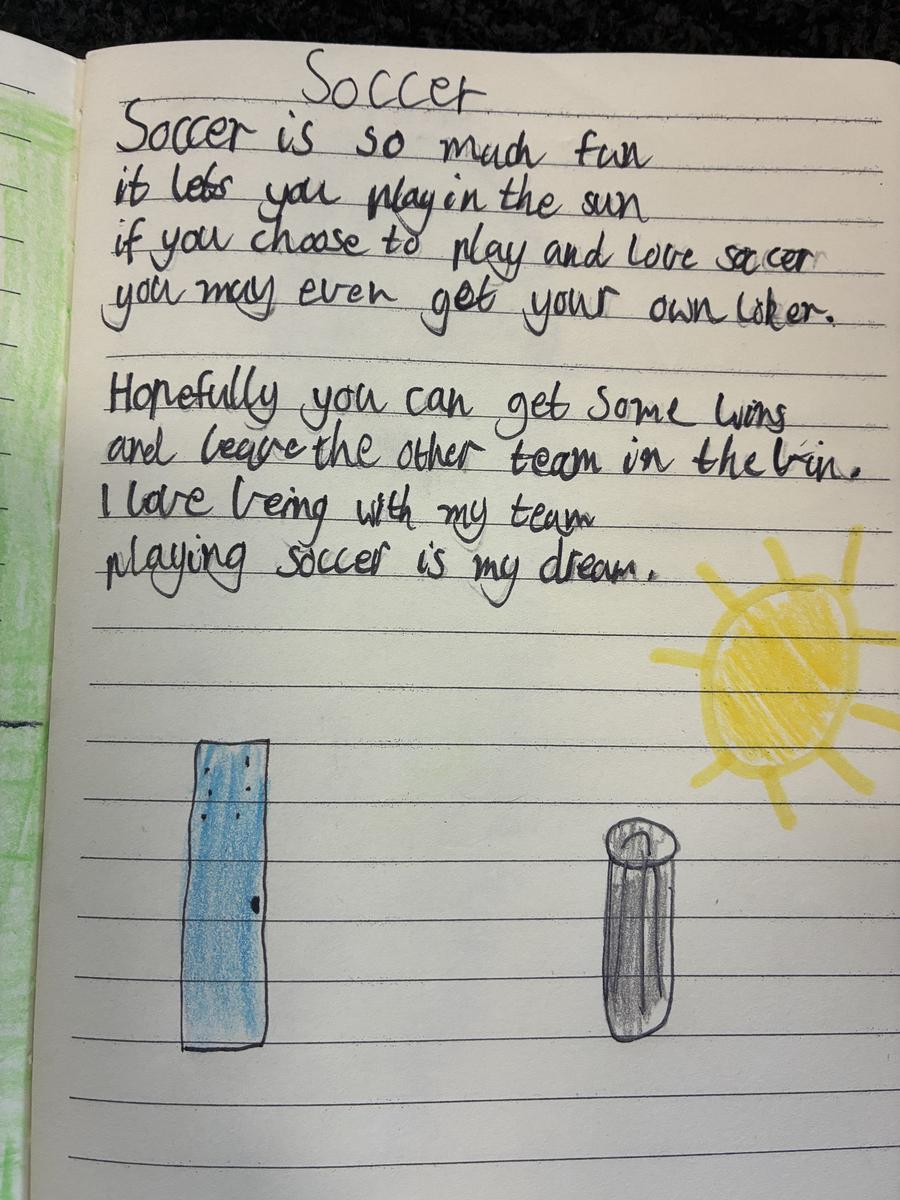 Soccer
Soccer is so much fun
it lets you play in the sun
if you choose to play and love soccer
you may even get your own loker.
Hopefully you can get some wins
and leave the other team in the bin.
I love being with my team
playing soccer is my dream.